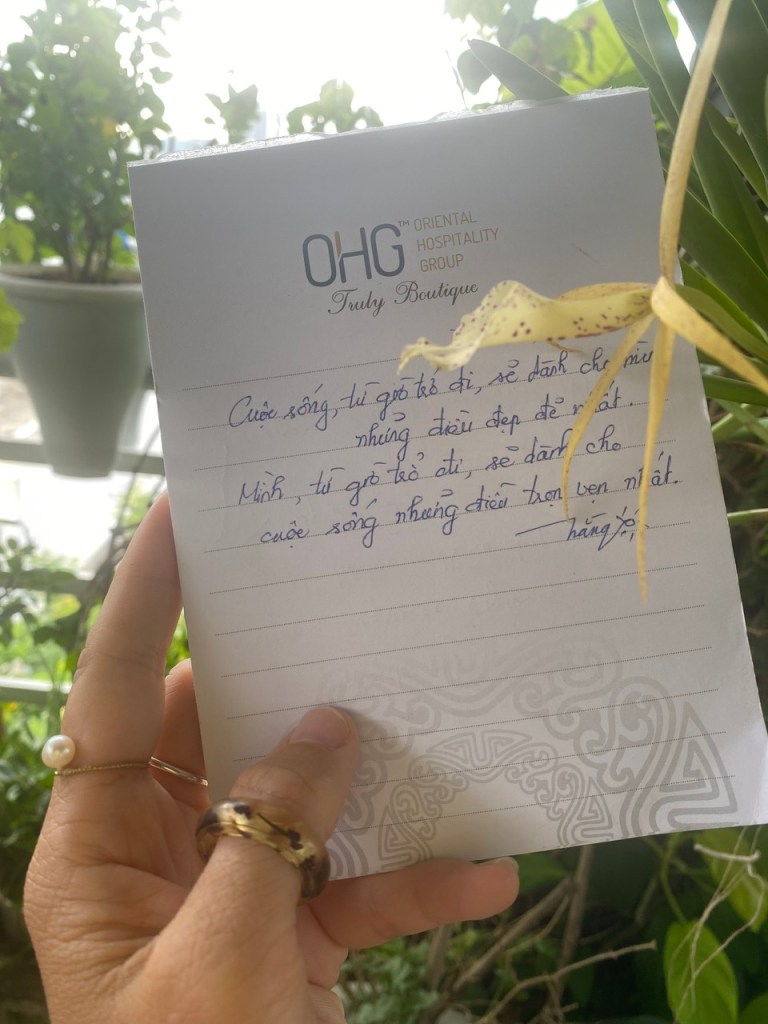 OHG™ ORIENTAL
HOSPITALITY
GROUP
Truly Boutique
Cuộc sống, từ giờ trở đi, sẽ dành cho mình
những điều đẹp đẽ nhất.
Mình, từ giờ trở đi, sẽ dành cho
cuộc sống những điều trọn vẹn nhất.